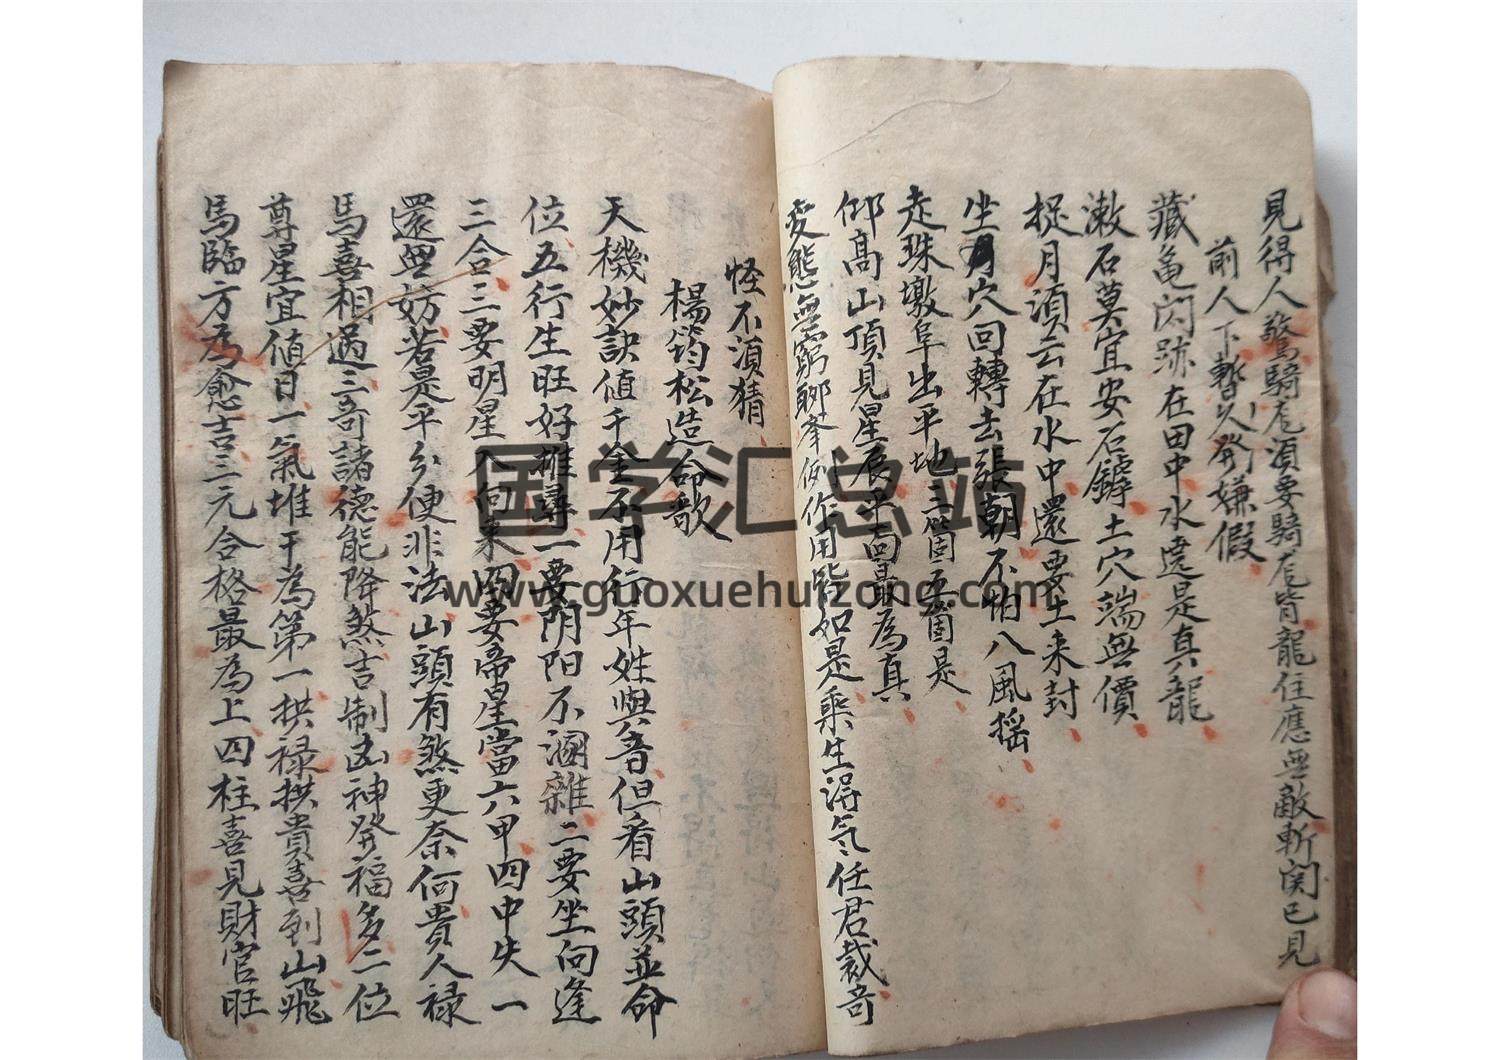 見得人驚騎龙湏要騎龙背龍住應無敵斬関已見
前人下暫以発嫌假
藏亀閃跡在田中水遶是真龍
漱石莫宜安石鏬土穴端無價
捉月湏云在水中還要土来封
坐穴回轉去張朝不怕八風揺
走珠墩阜出平地三箇五箇是
仰高山頂見星辰平面最為真
变態無窮聊挙例作用皆如是乗生淂気任君裁竒
怪不湏猜
楊筠松造命歌
天機妙訣值千金不用行年姓與音但看山頭並命
位五行生旺好推尋一要阴阳不溷雜二要坐向逢
三合三要明星入向来四要帝星當六甲四中失一
還無妨若是平分便非法山頭有煞更奈何貴人禄
馬喜相遇三竒諸德能降煞吉制凶神発福多二位
尊星宜值日一氣堆干為第一拱禄拱貴喜到山飛
馬臨方為愈吉三元合格最為上四柱喜見財官旺
国学汇总站
www.guoxuehuizong.com